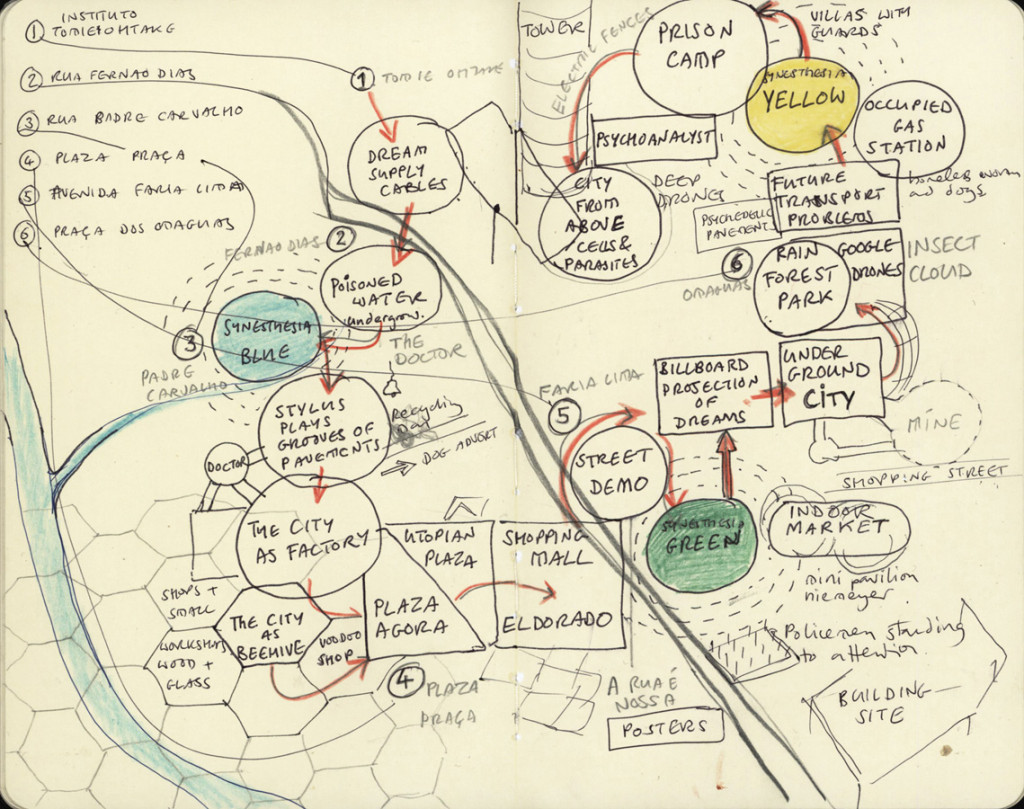 ① INSTITUTO
TOMIE OHTAKE
② RUA FERNAO DIAS
③ RUA PADRE CARVALHO
④ PLAZA PRAÇA
⑤ AVENIDA FARIA LIMA
⑥ PRAÇA DOS OMAGUAS
① TOMIE OHTAKE
DREAM
SUPPLY
CABLES
FERNAO DIAS ②
POISONED
WATER
undergrow.
SYNESTHESIA
BLUE
③
PADRE
CARVALHO
THE
DOCTOR
STYLUS
PLAYS
GROOVES OF
PAVEMENTS
Recycling
Day
DOG ADVERT
DOCTOR
THE CITY
AS FACTORY
SHOPS +
SMALL
WORKSHOPS
WOOD +
GLASS
THE CITY
AS
BEEHIVE
VOODOO
SHOP
UTOPIAN
PLAZA
PLAZA
AGORA
④ PLAZA
PRAÇA
SHOPPING
MALL
ELDORADO
TOWER
ELECTRIC FENCES
PRISON
CAMP
VILLAS WITH
GUARDS
SYNESTHESIA
YELLOW
OCCUPIED
GAS
STATION
homeless woman
and dogs
PSYCHOANALYST
CITY
FROM
ABOVE
CELLS &
PARASITES
DEEP
DRONES
PSYCHEDELIC
PAVEMENTS
FUTURE
TRANSPORT
PROBLEMS
⑥
OMAGUAS
RAIN
FOREST
PARK
GOOGLE
DRONES
INSECT
CLOUD
FARIA LIMA
⑤
BILLBOARD
PROJECTION
OF
DREAMS
UNDER
GROUND
CITY
MINE
STREET
DEMO
SYNESTHESIA
GREEN
SHOPPING STREET
INDOOR
MARKET
mini pavilion
niemeyer
Policemen standing
to attention
A RUA É
NOSSA
POSTERS
BUILDING
SITE